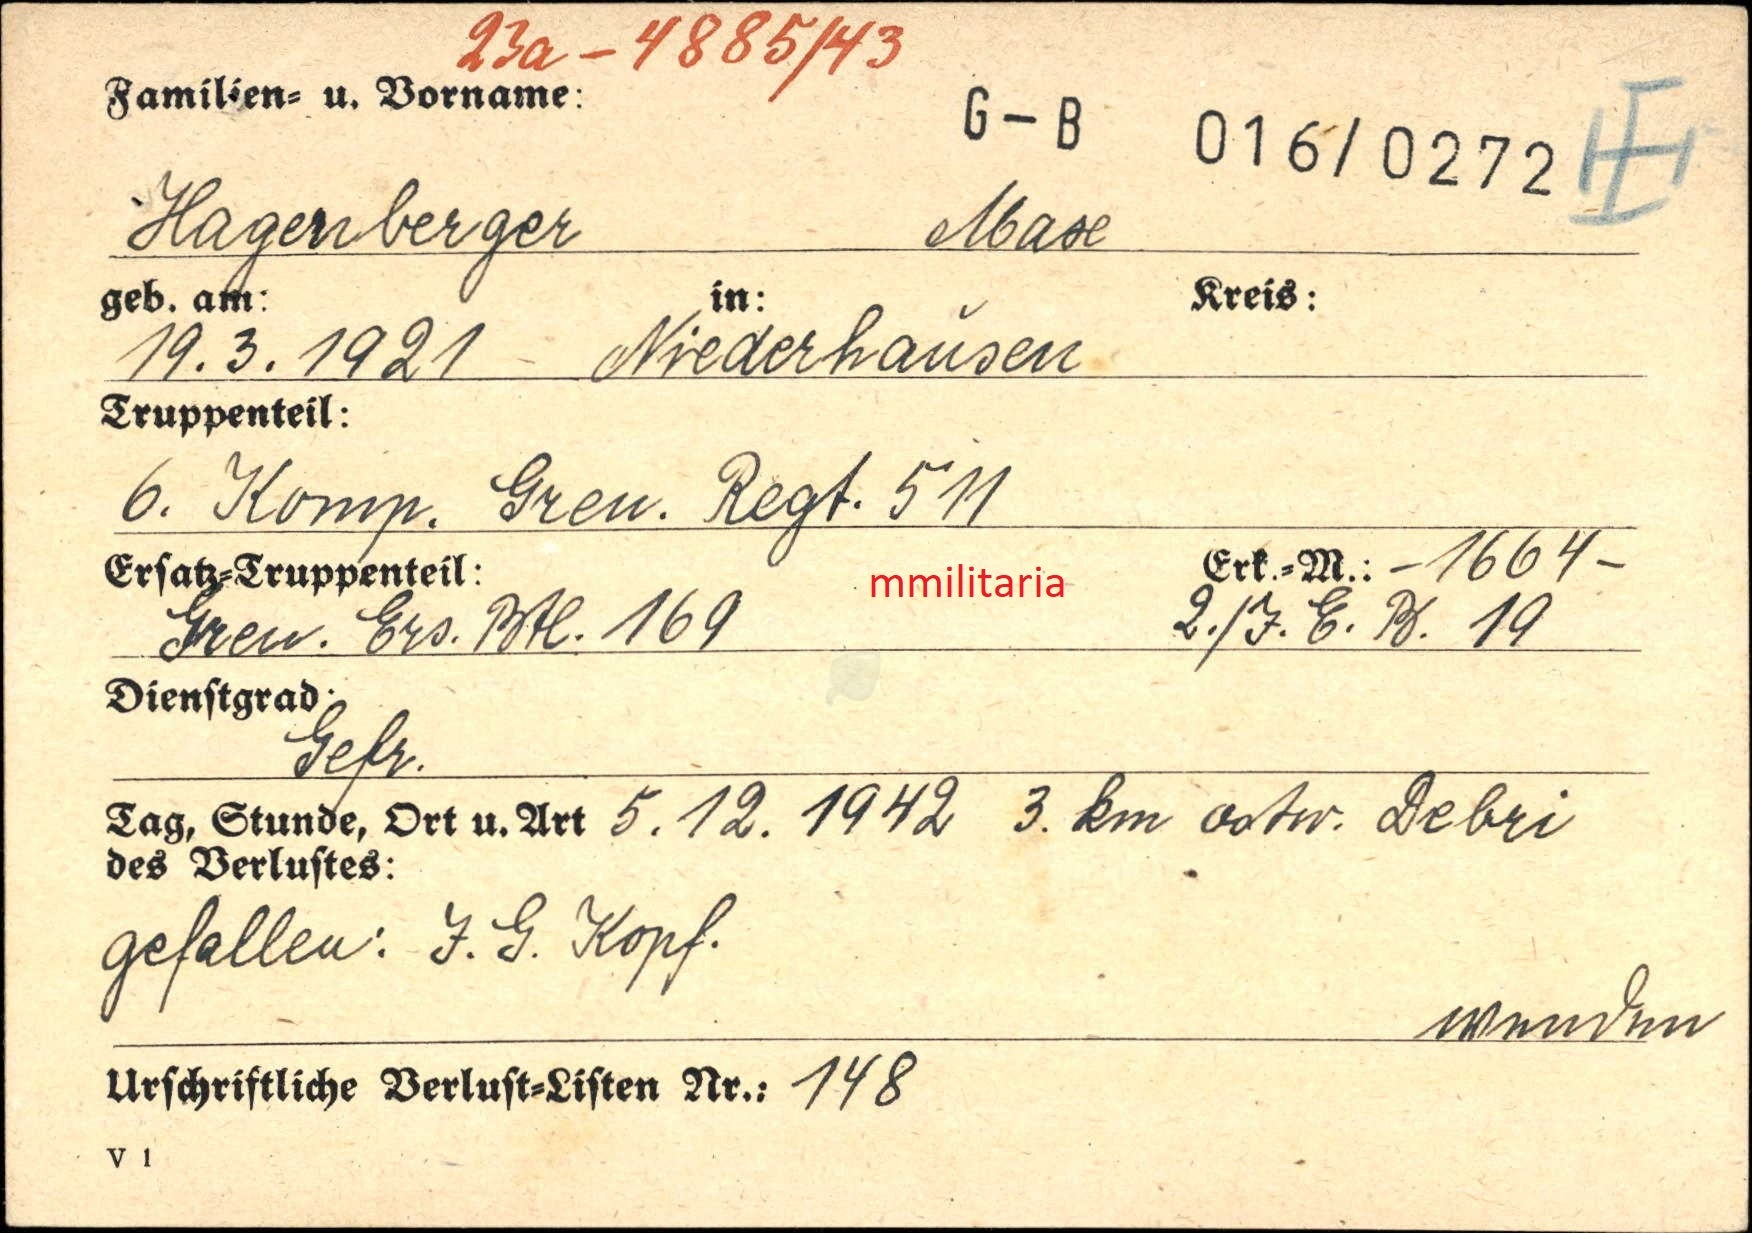 23a - 4885/43
Familien= u. Vorname:
G-B 016/0272
Hagenberger Max
geb. am: in: Kreis:
19.3.1921 - Niederhausen
Truppenteil:
6. Komp. Gren. Regt. 511
Ersatz=Truppenteil: Erk.=M.: -1664-
mmilitaria
Gren. Ers. Btl. 169 2./J. E. B. 19
Dienstgrad:
Gefr.
Tag, Stunde, Ort u. Art 5.12.1942 3. km ostw. Debri
des Verlustes:
gefallen: J. G. Kopf.
wenden
Urschriftliche Verlust=Listen Nr.: 148
V 1